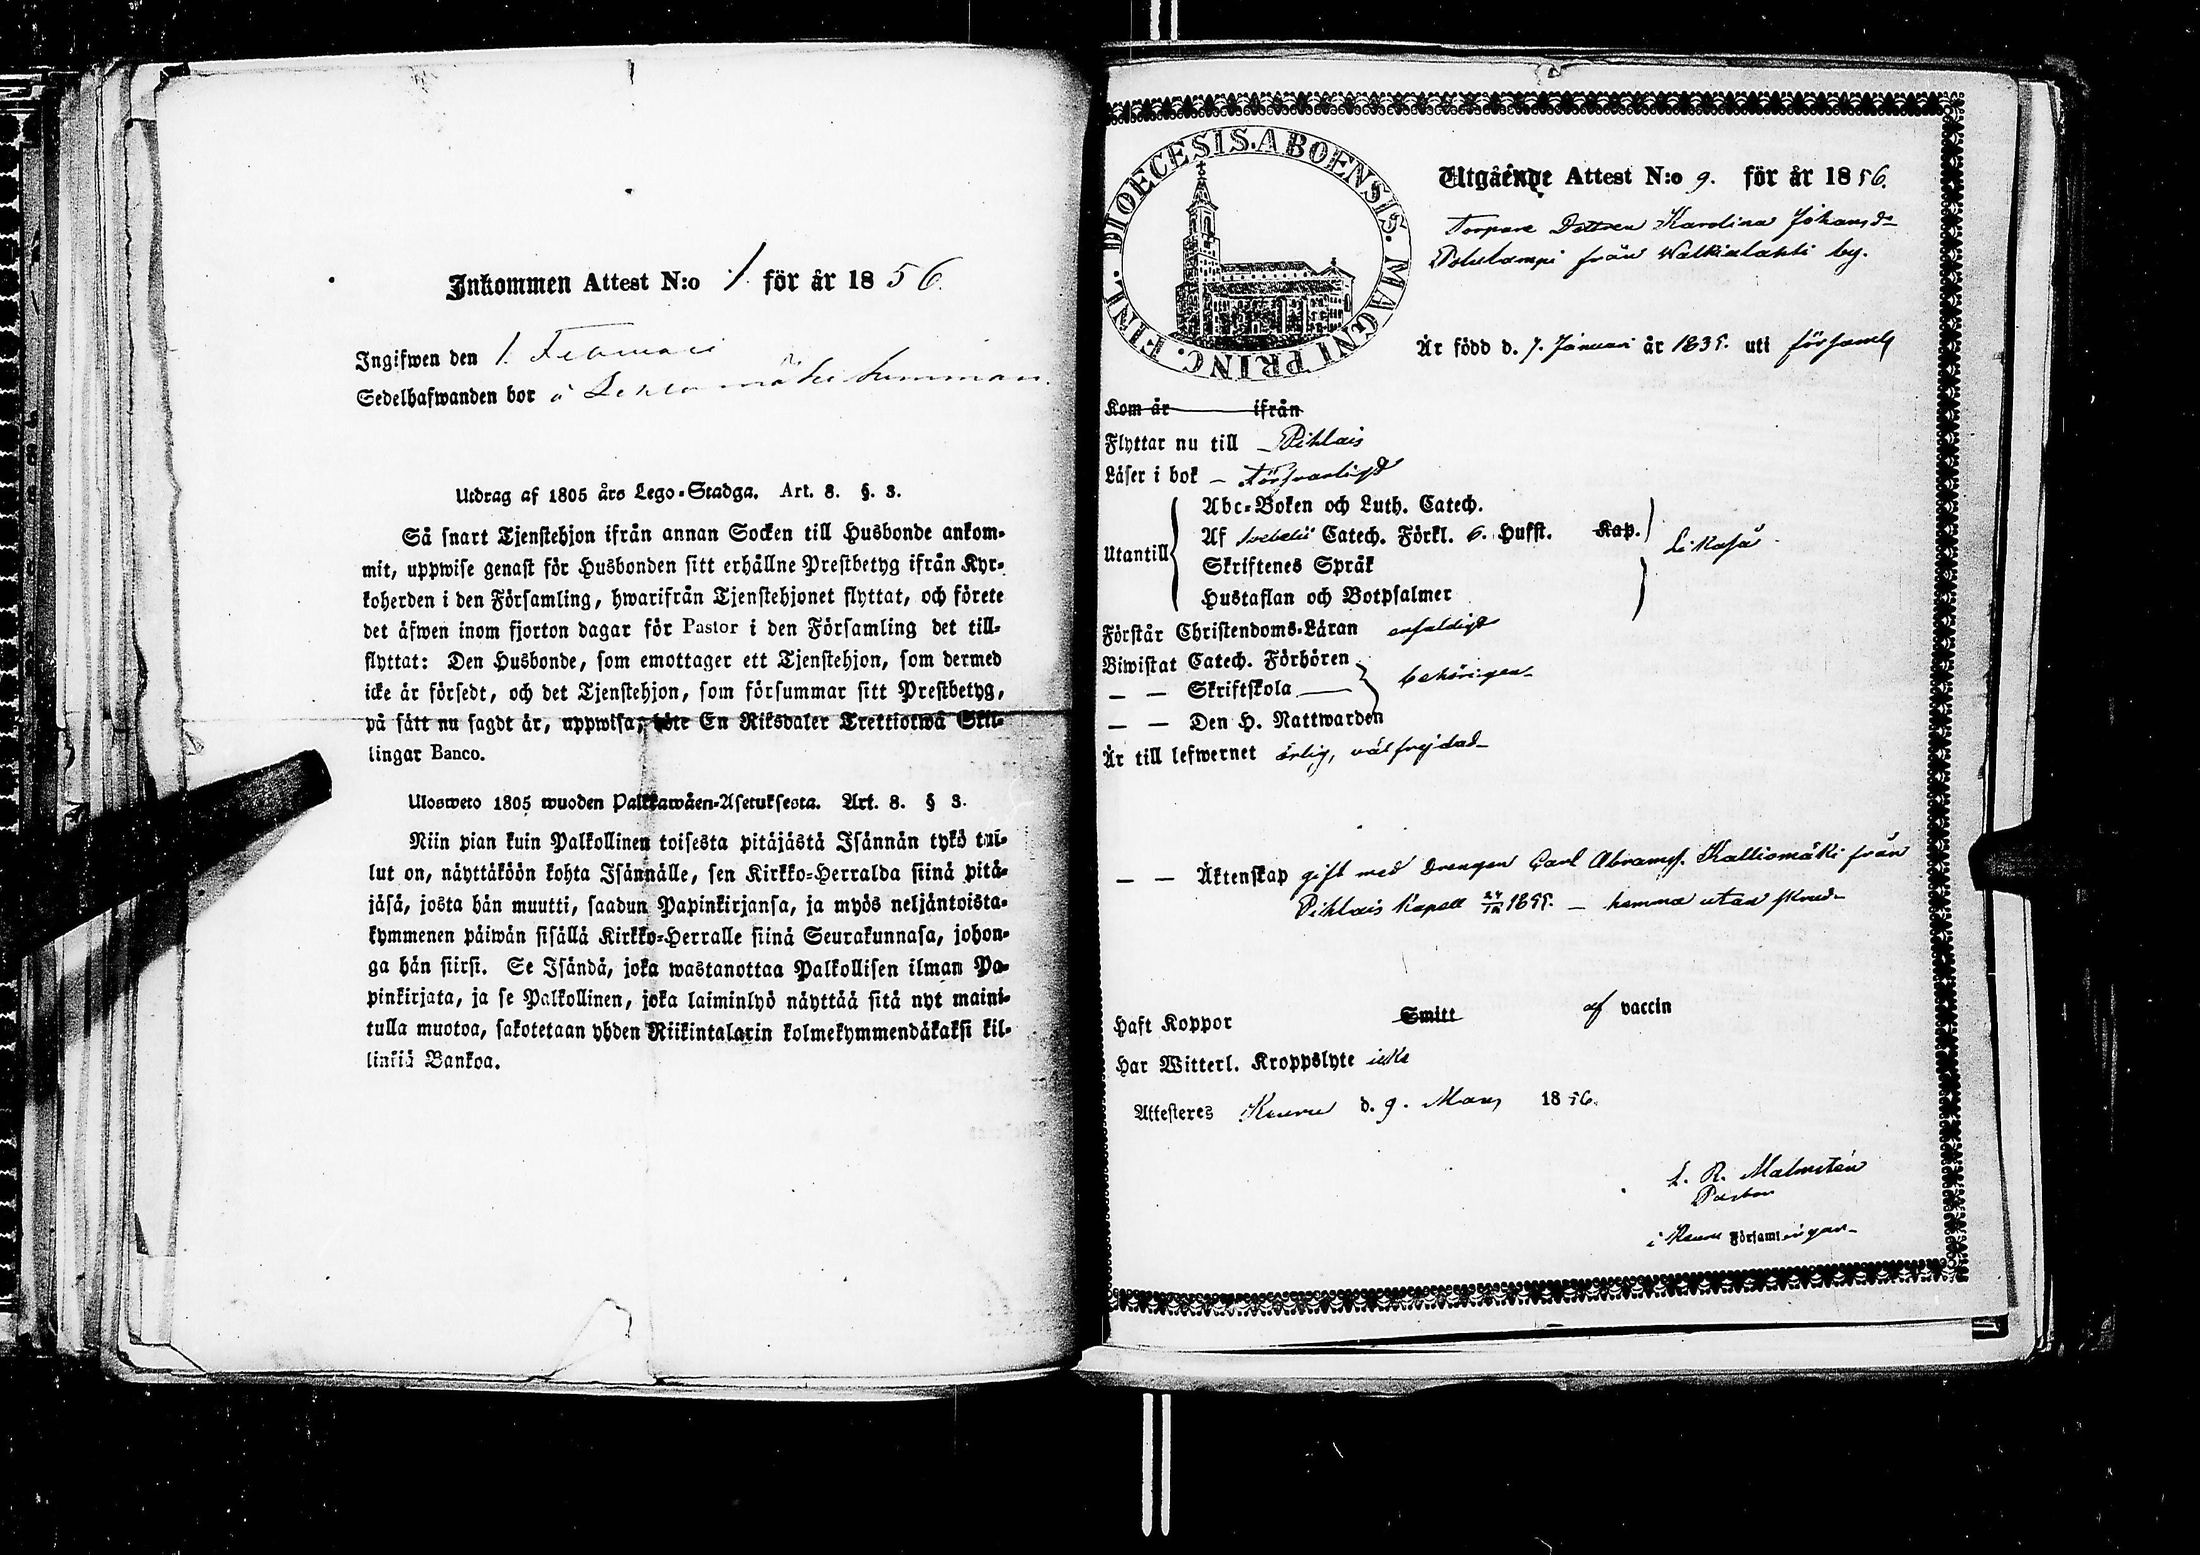 Inkommen Attest N:o 1. för år 1856.
Ingifwen den 1. Februari
Sedelhafwanden bor å
Utdrag af 1805 års Lego-Stadga. Art. 8. §. 3.
Så snart Tjenstehjon ifrån annan Socken till Husbonde ankom-
mit, uppwise genast för Husbonden sitt erhållne Prestbetyg ifrån Kyr-
koherden i den Församling, hwarifrån Tjenstehjonet flyttat, och förete
det äfwen inom fjorton dagar för Pastor i den Församling det till-
flyttat: Den Husbonde, som emottager ett Tjenstehjon, som dermed
icke är försedt, och det Tjenstehjon, som försummar sitt Prestbetyg,
på sätt nu sagdt är, uppwisa, böte En Riksdaler Trettiotwå Skil-
lingar Banco.
Ulosweto 1805 wuoden Palkkawäen-Asetuksesta. Art. 8. § 3.
Niin pian kuin Palkollinen toisesta pitäjästä Isännän tykö tul-
lut on, näyttäköön kohta Isännälle, sen Kirkko-Herralda siinä pitä-
jäsä, josta hän muutti, saadun Papinkirjansa, ja myös neljäntoista-
kymmenen päiwän sisällä Kirkko-Herralle siinä Seurakunnasa, johon-
ga hän siirsi. Se Isändä, joka wastanottaa Palkollisen ilman Pa-
pinkirjata, ja se Palkollinen, joka laiminlyö näyttää sitä nyt maini-
tulla muotoa, sakotetaan yhden Riikintalarin kolmekymmendäkaksi kil-
linkiä Bankoa.
FINL. DIOECESIS. ABOENSIS. MAGNI PRINC.
Utgående Attest N:o 9. för år 1856.
Torpare Dottren Karolina Johansd:
från Walkialahti by.
Är född d. 7. Januari år 1835. uti församl
Kom år ifrån
Flyttar nu till Pihlais
Läser i bok – Försvarligt
Utantill
Abc-Boken och Luth. Catech.
Af Svebelii Catech. Förkl. 6. Hufst. Kap.
Skriftenes Språk
Hustaflan och Botpsalmer
Likaså
Förstår Christendoms-Läran enfaldigt
Biwistat Catech. Förhören
— — Skriftskola
behörigen
— — Den H. Nattwarden
Är till lefwernet ärlig, välfrejdad
— — Äktenskap gift med drengen Carl Abramss. Kalliomäki från
Pihlais Kapell 27/12 1855. – hemma utan
Haft Koppor Smitt af vaccin
Har Witterl. Kroppslyte icke
Attesteres Keuru d. 9. Mars 1856.
L. R. Malmstén
Pastor
i Keuru Församlingar